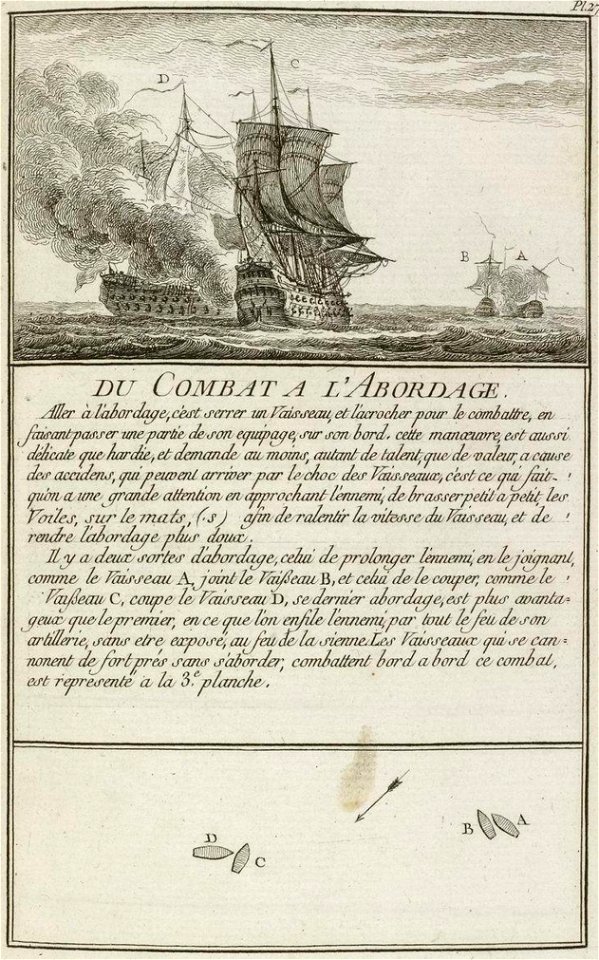 Pl.27
D
C
B
A
DU COMBAT A L'ABORDAGE.
Aller à l'abordage, c'est serrer un Vaisseau, et l'acrocher pour le combattre, en
faisant passer une partie de son equipage, sur son bord. cette manœuvre, est aussi
délicate que hardie, et demande au moins, autant de talent, que de valeur, a cause
des accidens, qui peuvent arriver par le choc des Vaisseaux, c'est ce qui fait-
qu'on a une grande attention en approchant l'ennemi, de brasser petit a petit les
Voiles, sur le mats, (.s) afin de ralentir la vitesse du Vaisseau, et de
rendre l'abordage plus doux.
Il y a deux sortes d'abordage, celui de prolonger l'ennemi, en le joignant,
comme le Vaisseau A, joint le Vaißeau B, et celui de le couper, comme le
Vaißeau C, coupe le Vaisseau D, se dernier abordage, est plus avanta-
geux que le premier, en ce que l'on enfile l'ennemi, par tout le feu de son
artillerie, sans etre exposé, au feu de la sienne. Les Vaisseaux qui se can=
nonent de fort prés sans s'aborder, combattent bord a bord ce combat,
est representé a la 3.e planche.
D
C
B
A